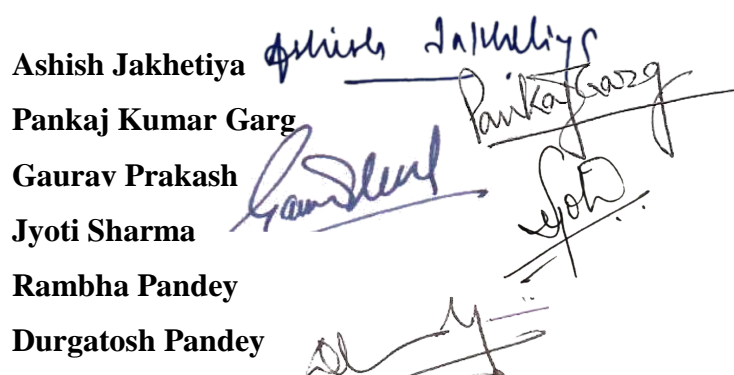 Ashish Jakhetiya Ashish Jakhetiya
Pankaj Kumar Garg Pankaj Garg
Gaurav Prakash
Jyoti Sharma Jyoti
Rambha Pandey
Durgatosh Pandey